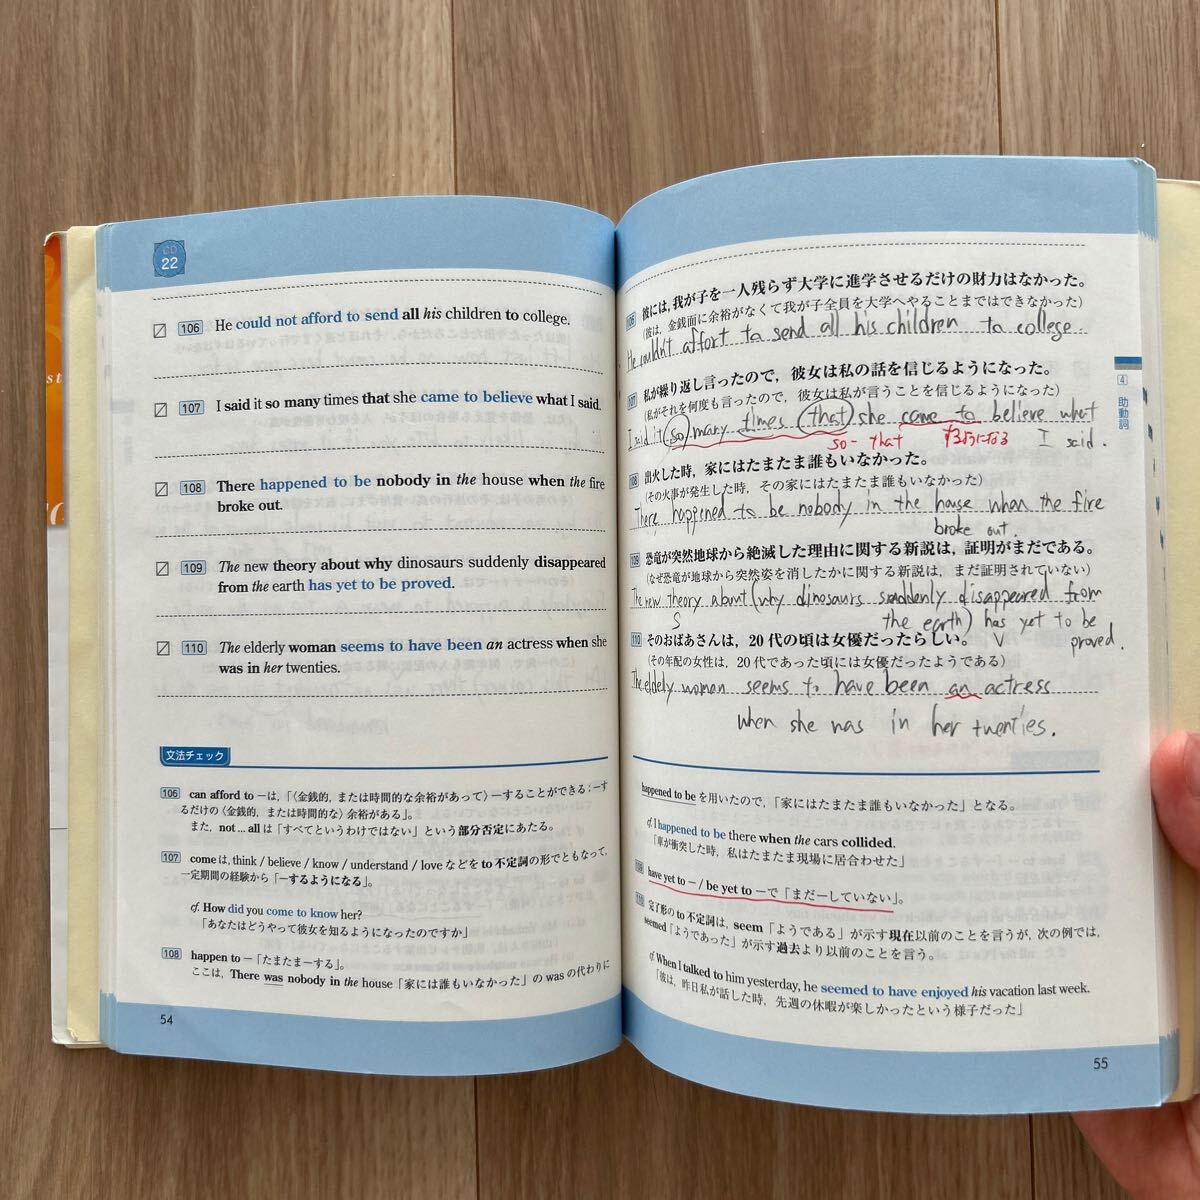 CD
22
106 He could not afford to send all his children to college.
107 I said it so many times that she came to believe what I said.
108 There happened to be nobody in the house when the fire
broke out.
109 The new theory about why dinosaurs suddenly disappeared
from the earth has yet to be proved.
110 The elderly woman seems to have been an actress when she
was in her twenties.
文法チェック
106 can afford to －は，「〈金銭的，または時間的な余裕があって〉－することができる；－す
るだけの〈金銭的，または時間的な〉余裕がある」。
また，not ... all は「すべてというわけではない」という部分否定にあたる。
107 come は，think / believe / know / understand / love などを to 不定詞の形でともなって，
一定期間の経験から「－するようになる」。
cf. How did you come to know her?
「あなたはどうやって彼女を知るようになったのですか」
108 happen to －「たまたま－する」。
ここは，There was nobody in the house「家には誰もいなかった」の was の代わりに
54
106 彼には，我が子を一人残らず大学に進学させるだけの財力はなかった。
(彼は，金銭面に余裕がなくて我が子全員を大学へやることまではできなかった)
He couldn't affort to send all his children to college.
107 私が繰り返し言ったので，彼女は私の話を信じるようになった。
(私がそれを何度も言ったので，彼女は私が言うことを信じるようになった)
I said it so many times that she came to believe what
so- that するようになる I said.
108 出火した時，家にはたまたま誰もいなかった。
(その火事が発生した時，その家にはたまたま誰もいなかった)
There happened to be nobody in the house when the fire
broke out.
109 恐竜が突然地球から絶滅した理由に関する新説は，証明がまだである。
(なぜ恐竜が地球から突然姿を消したかに関する新説は，まだ証明されていない)
The new theory about (why dinosaurs suddenly disappeared from
S the earth) has yet to be
V proved.
110 そのおばあさんは，20代の頃は女優だったらしい。
(その年配の女性は，20代であった頃には女優だったようである)
The eldely woman seems to have been an actress
when she was in her twenties.
happened to be を用いたので，「家にはたまたま誰もいなかった」となる。
cf. I happened to be there when the cars collided.
「車が衝突した時，私はたまたま現場に居合わせた」
109 have yet to － / be yet to －で「まだ－していない」。
110 完了形の to 不定詞は，seem「ようである」が示す現在以前のことを言うが，次の例では，
seemed「ようであった」が示す過去より以前のことを言う。
cf. When I talked to him yesterday, he seemed to have enjoyed his vacation last week.
「彼は，昨日私が話した時，先週の休暇が楽しかったという様子だった」
55
4 助動詞